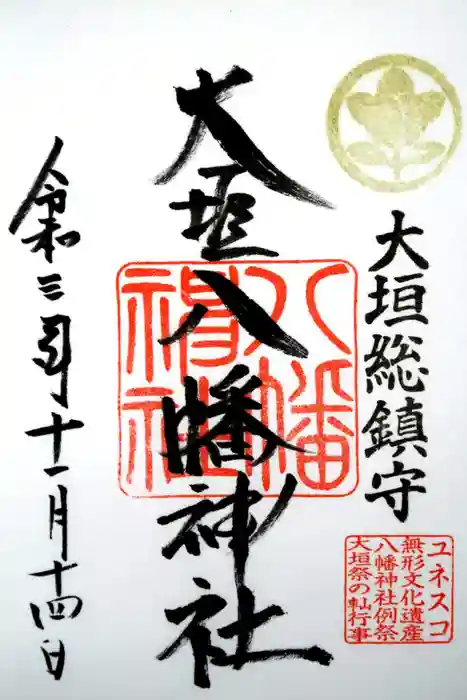 大垣総鎮守
ユネスコ
無形文化遺産
八幡神社例祭
大垣祭の軕行事
大垣八幡神社
八幡
神社
令和三年十一月十四日